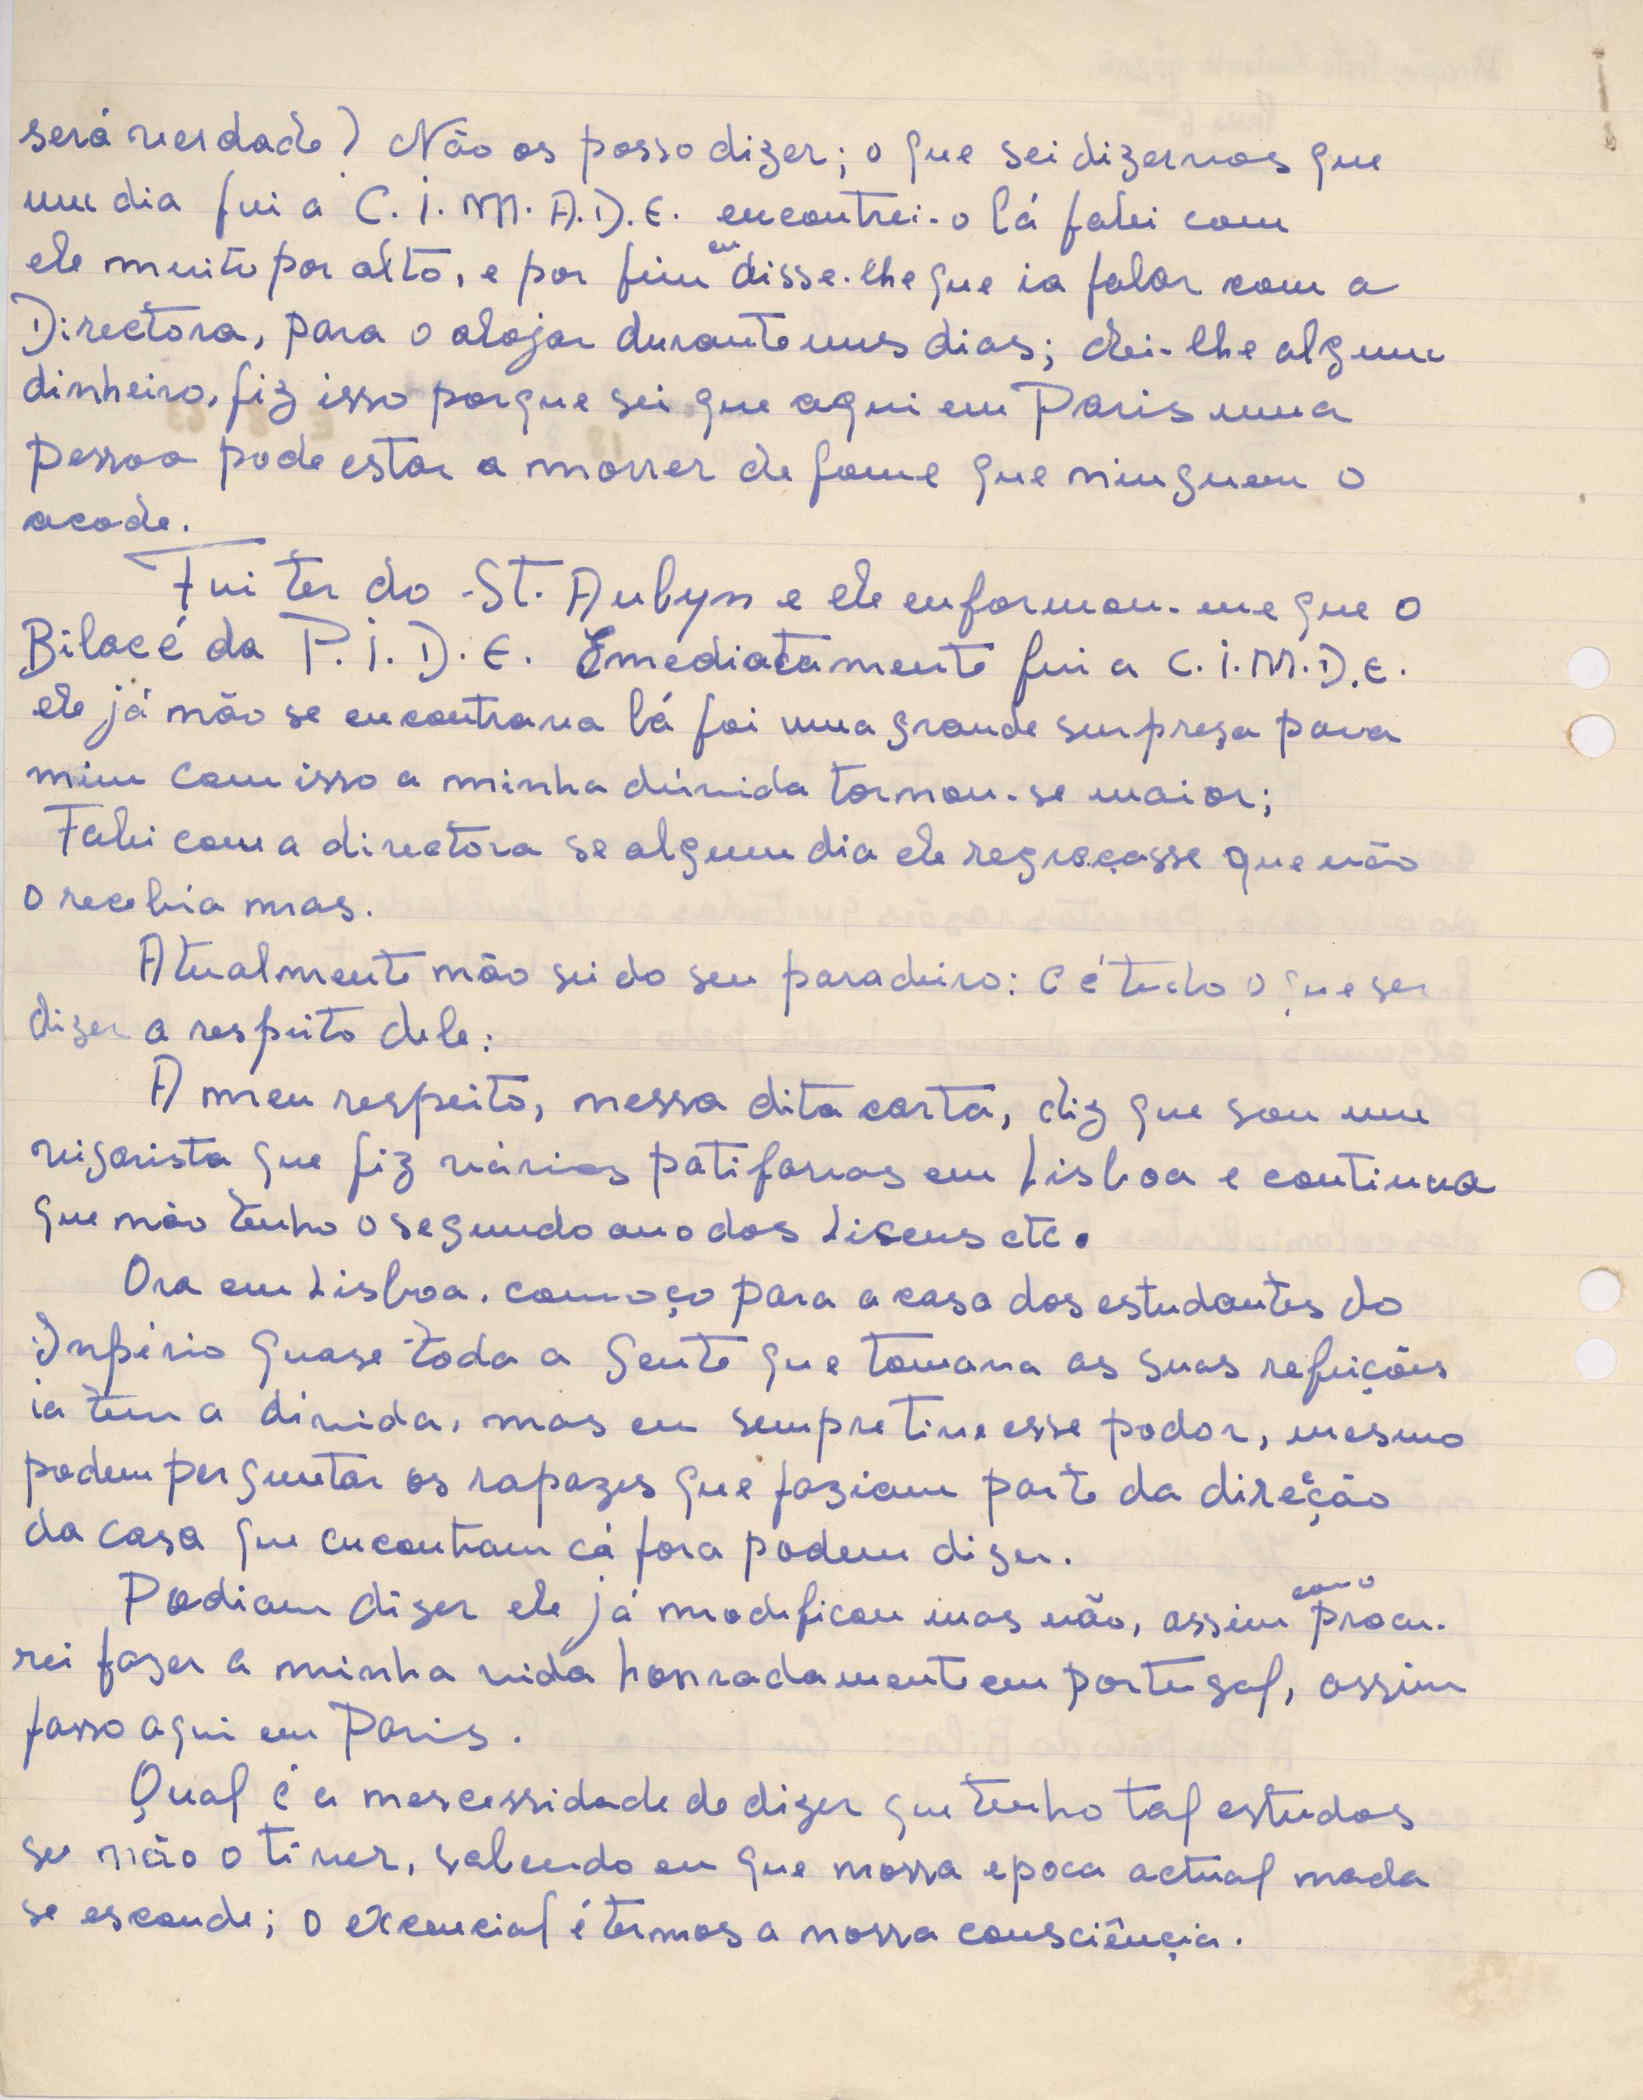 será verdade? Não os posso dizer; o que sei dizervos que
um dia fui a C.I.M.A.D.E. encontrei-o lá falei com
ele muito por alto, e por fim eu disse-lhe que ia falar com a
Directora, para o alojar durante uns dias; dei-lhe algum
dinheiro, fiz isso porque sei que aqui em Paris uma
pessoa pode estar a morrer de fome que ninguem o
acode.
Fui ter do St. Aubyn e ele enformou-me que o
Bilac é da P.I.D.E. Emediatamente fui a C.I.M.D.E.
ele já não se encontrava lá foi uma grande surpresa para
mim com isso a minha dúvida tornou-se maior;
Falei com a directora se algum dia ele regreçasse que não
o recebia mas.
Atualmente não sei do seu paradeiro: e é tudo o que sei
dizer a respeito dele:
A meu respeito, nessa dita carta, diz que sou um
vigarista que fiz várias patifarias em Lisboa e continua
que não tenho o segundo ano dos Liseus etc.
Ora em Lisboa. começo para a casa dos estudantes do
Inpério quase toda a gente que tomava as suas refeições
ia tem a divida, mas eu sempre tive esse podor, mesmo
podem perguntar os rapazes que faziam parte da direção
da casa que encontram cá fora podem dizer.
Podiam dizer ele já modificou mas não, assim como procu-
rei fazer a minha vida honradamente em portugal, assim
fasso aqui em Paris.
Qual é a nescessidade de dizer que tenho tal estudos
se não o tiver, sabendo eu que nossa epoca actual nada
se esconde; o excencial é termos a nossa consciênçia.